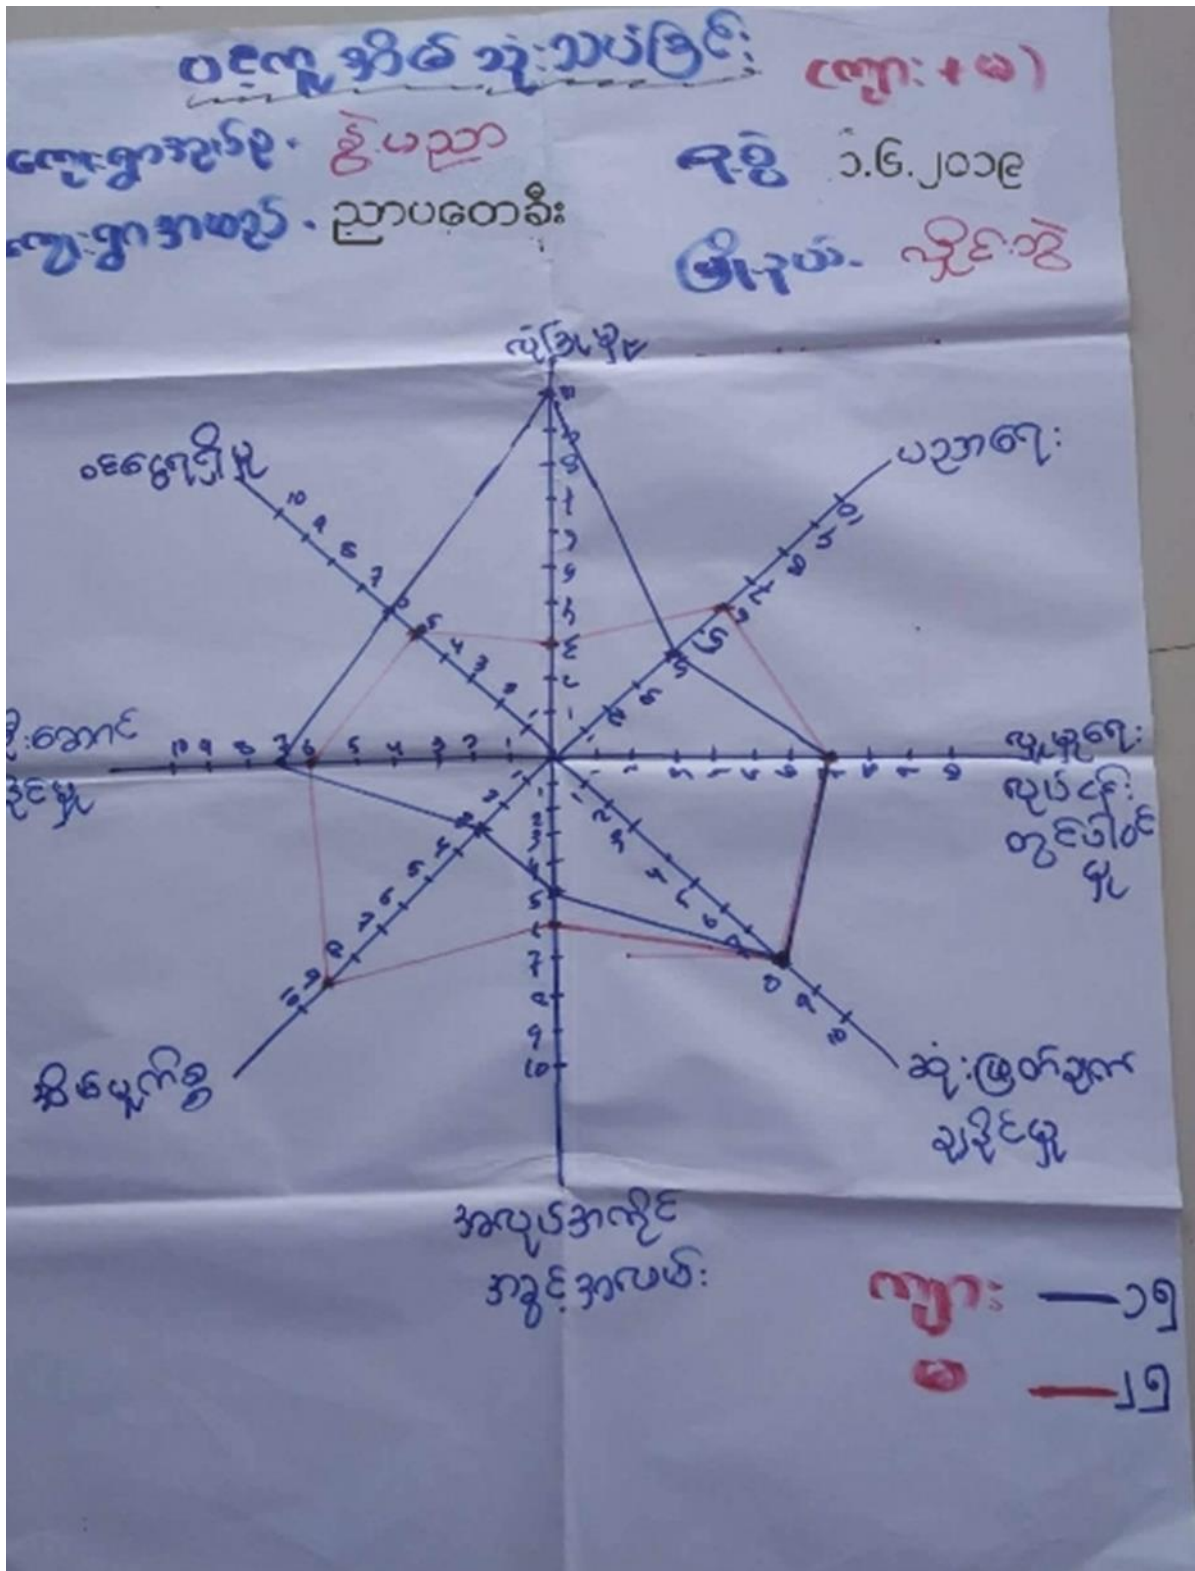 ပင့်ကူအိမ်သုံးသပ်ခြင်း (ကျား + မ)
ကျေးရွာအုပ်စု - နွဲ့ပညာ
ရက်စွဲ ၁.၆.၂၀၁၉
ကျေးရွာအမည် - ညာပတေခီး
မြို့နယ် - လှိုင်းဘွဲ
လုံခြုံမှု
ဝင်ငွေရရှိမှု
ပညာရေး
10 9 8 7 6 5 4 3 2 1
လူမှုရေး
လုပ်ငန်း
တွင်ပါဝင်
မှု
အိမ်မှုကိစ္စ
ဆုံးဖြတ်ချက်
ချနိုင်မှု
အလုပ်အကိုင်
အခွင့်အလမ်း
ကျား — ၁၅
မ — ၂၅